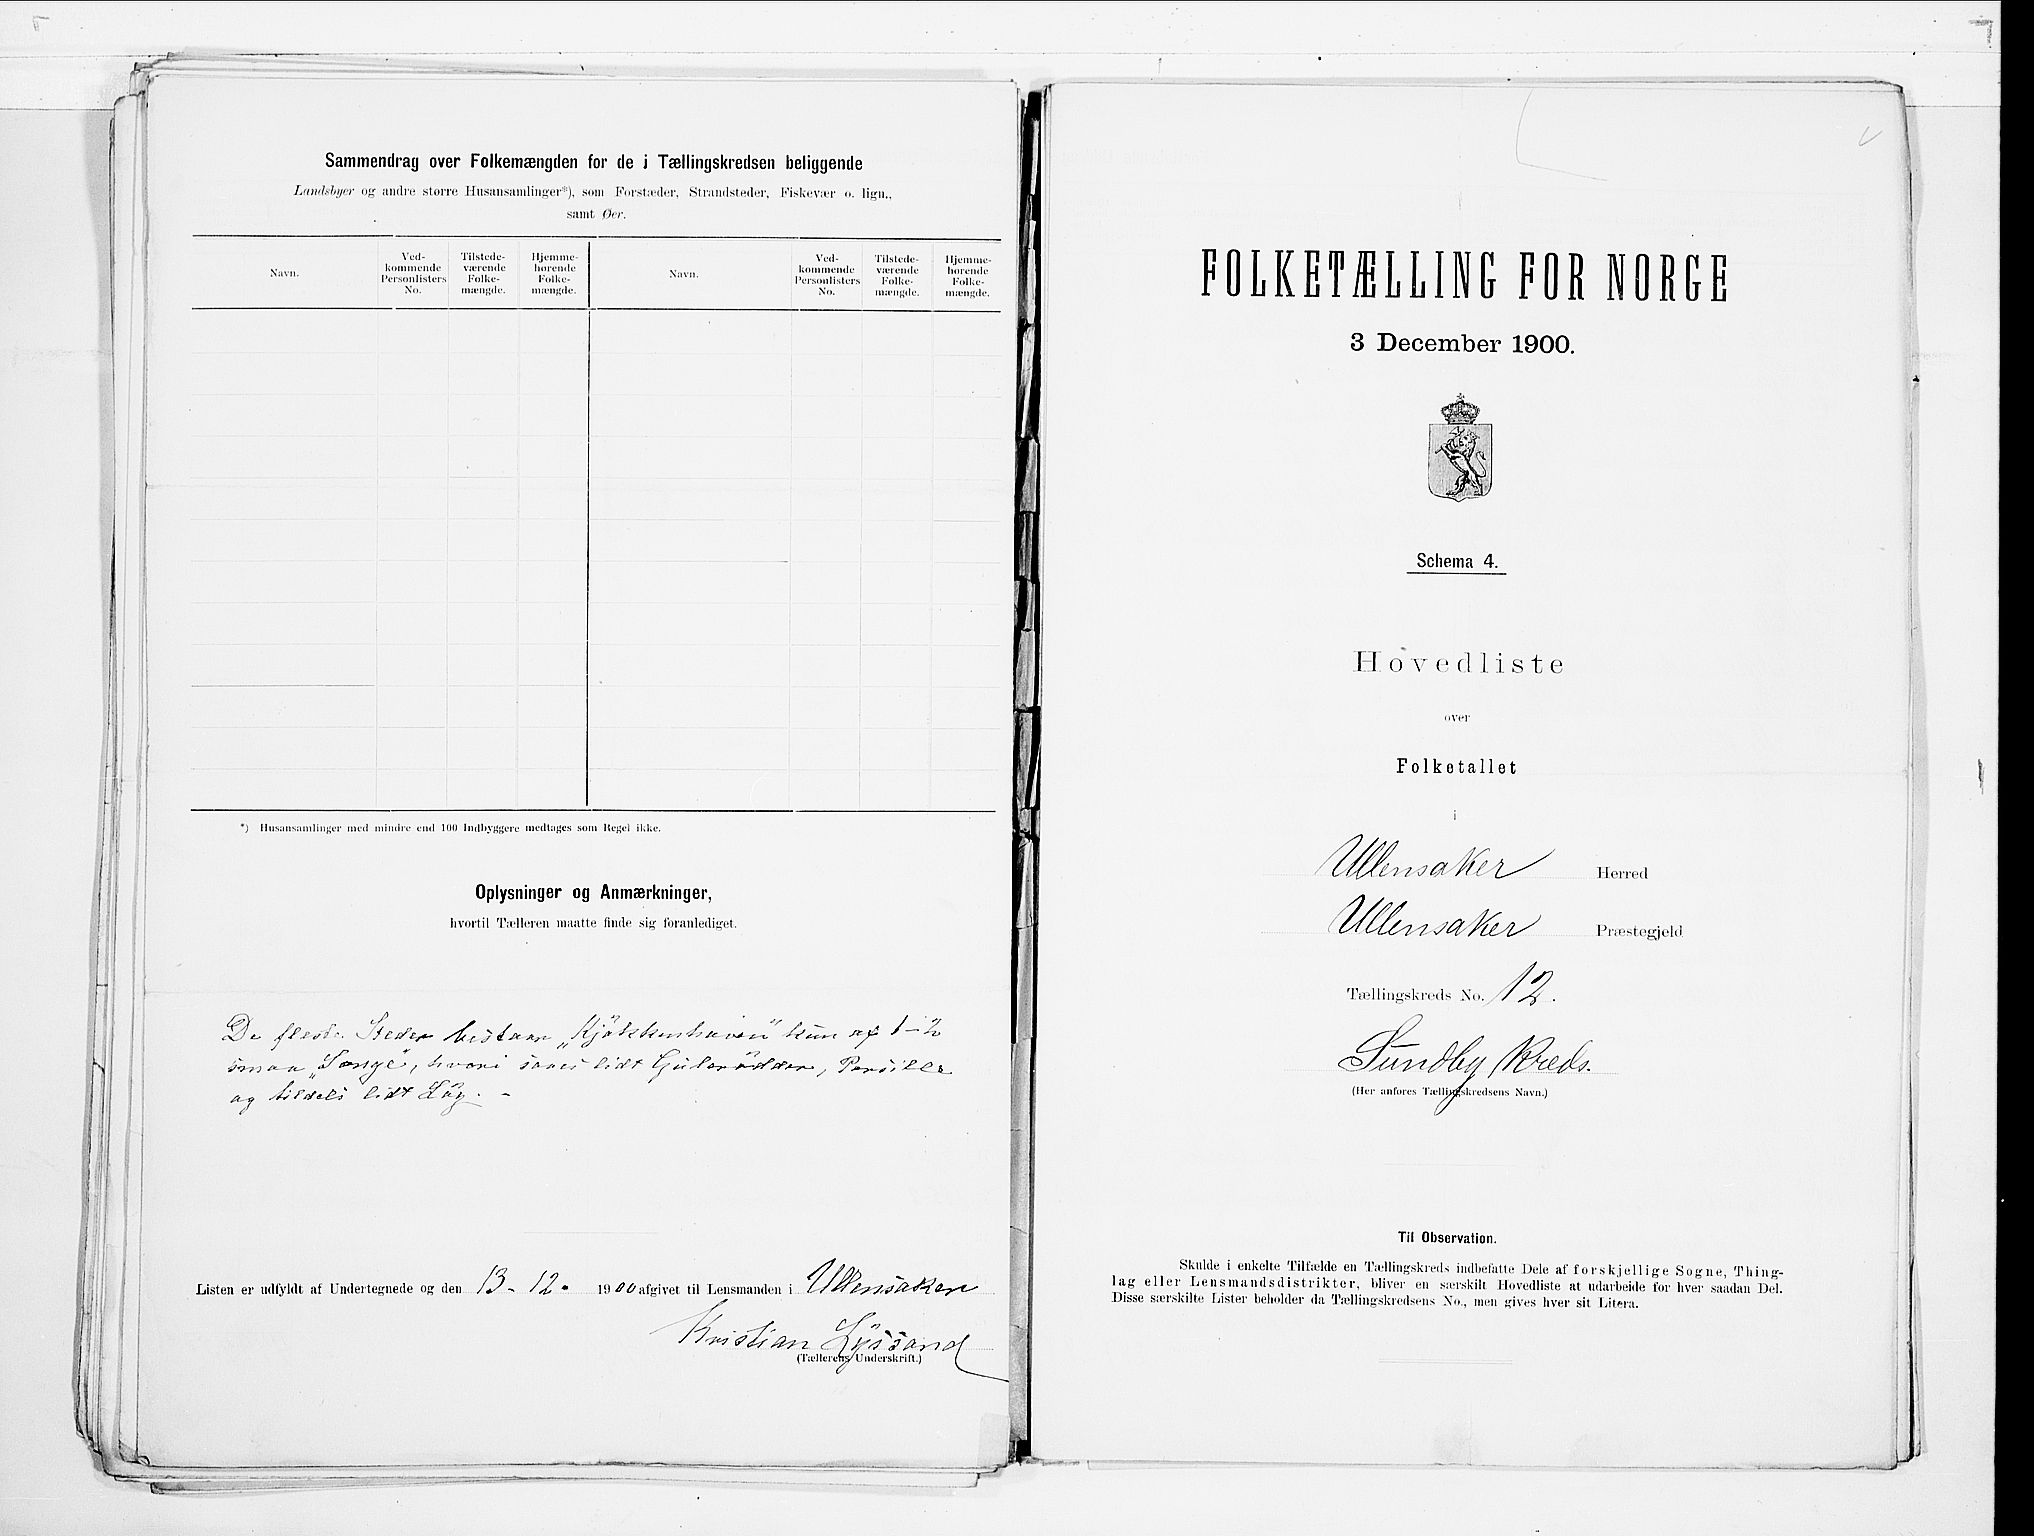 Sammendrag over Folkemængden for de i Tællingskredsen beliggende
Landsbyer og andre større Husansamlinger*), som Forstæder, Strandsteder, Fiskevær o. lign.,
samt Øer.
Navn.
Ved-
kommende
Personlisters
No.
Tilstede-
værende
Folke-
mængde.
Hjemme-
hørende
Folke-
mængde.
Navn.
Ved-
kommende
Personlisters
No.
Tilstede-
værende
Folke-
mængde.
Hjemme-
hørende
Folke-
mængde.
*) Husansamlinger med mindre end 100 Indbyggere medtages som Regel ikke.
Oplysninger og Anmærkninger,
hvortil Tælleren maatte finde sig foranlediget.
De fleste Steder bestaar „Kjökkenhaven" kun af 1–2
smaa „Senge", hvori saaes lidt Gulerödder, Persille
og tildels lidt Lög. –
Listen er udfyldt af Undertegnede og den 13-12- 1900 afgivet til Lensmanden i Ullensaker
Kristian Lyssand
(Tællerens Underskrift.)
FOLKETÆLLING FOR NORGE
3 December 1900.
Schema 4.
Hovedliste
over
Folketallet
i
Ullensaker Herred
Ullensaker Præstegjeld
Tællingskreds No. 12.
Sundby Kreds.
(Her anføres Tællingskredsens Navn.)
Til Observation.
Skulde i enkelte Tilfælde en Tællingskreds indbefatte Dele af forskjellige Sogne, Thing-
lag eller Lensmandsdistrikter, bliver en særskilt Hovedliste at udarbeide for hver saadan Del.
Disse særskilte Lister beholder da Tællingskredsens No., men gives hver sit Litera.